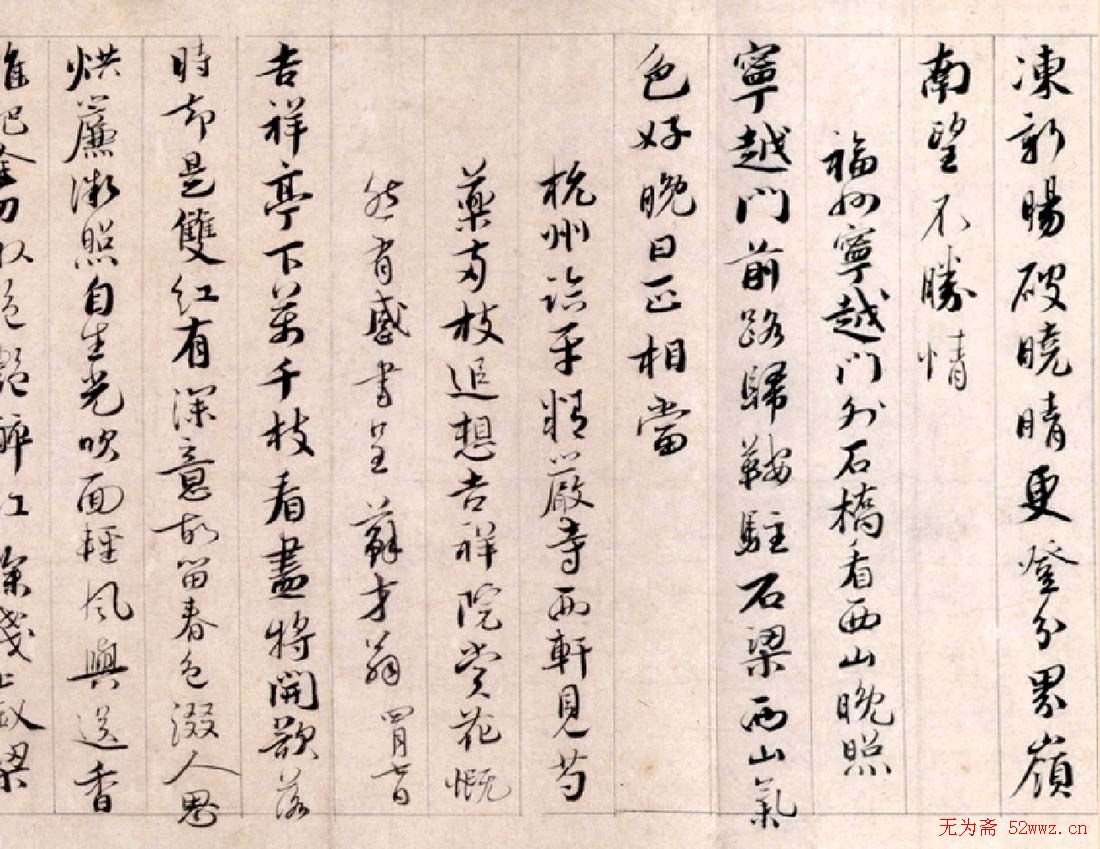 凍新暘破曉晴更登分界嶺
南望不勝情
福州寧越門外石橋看西山晚照
寧越門前路歸鞍駐石梁西山氣
色好晚日正相當
杭州臨平精嚴寺西軒見芍
藥兩枝追想吉祥院賞花慨
然有感書呈 蘇才翁 四月七日
吉祥亭下萬千枝看盡將開欲落
時却是雙紅有深意故留春色綴人思
烘簾微照自生光吹面輕風與送香
把金刀收艷醉深淺上釵梁
无为斋 52wwz.cn